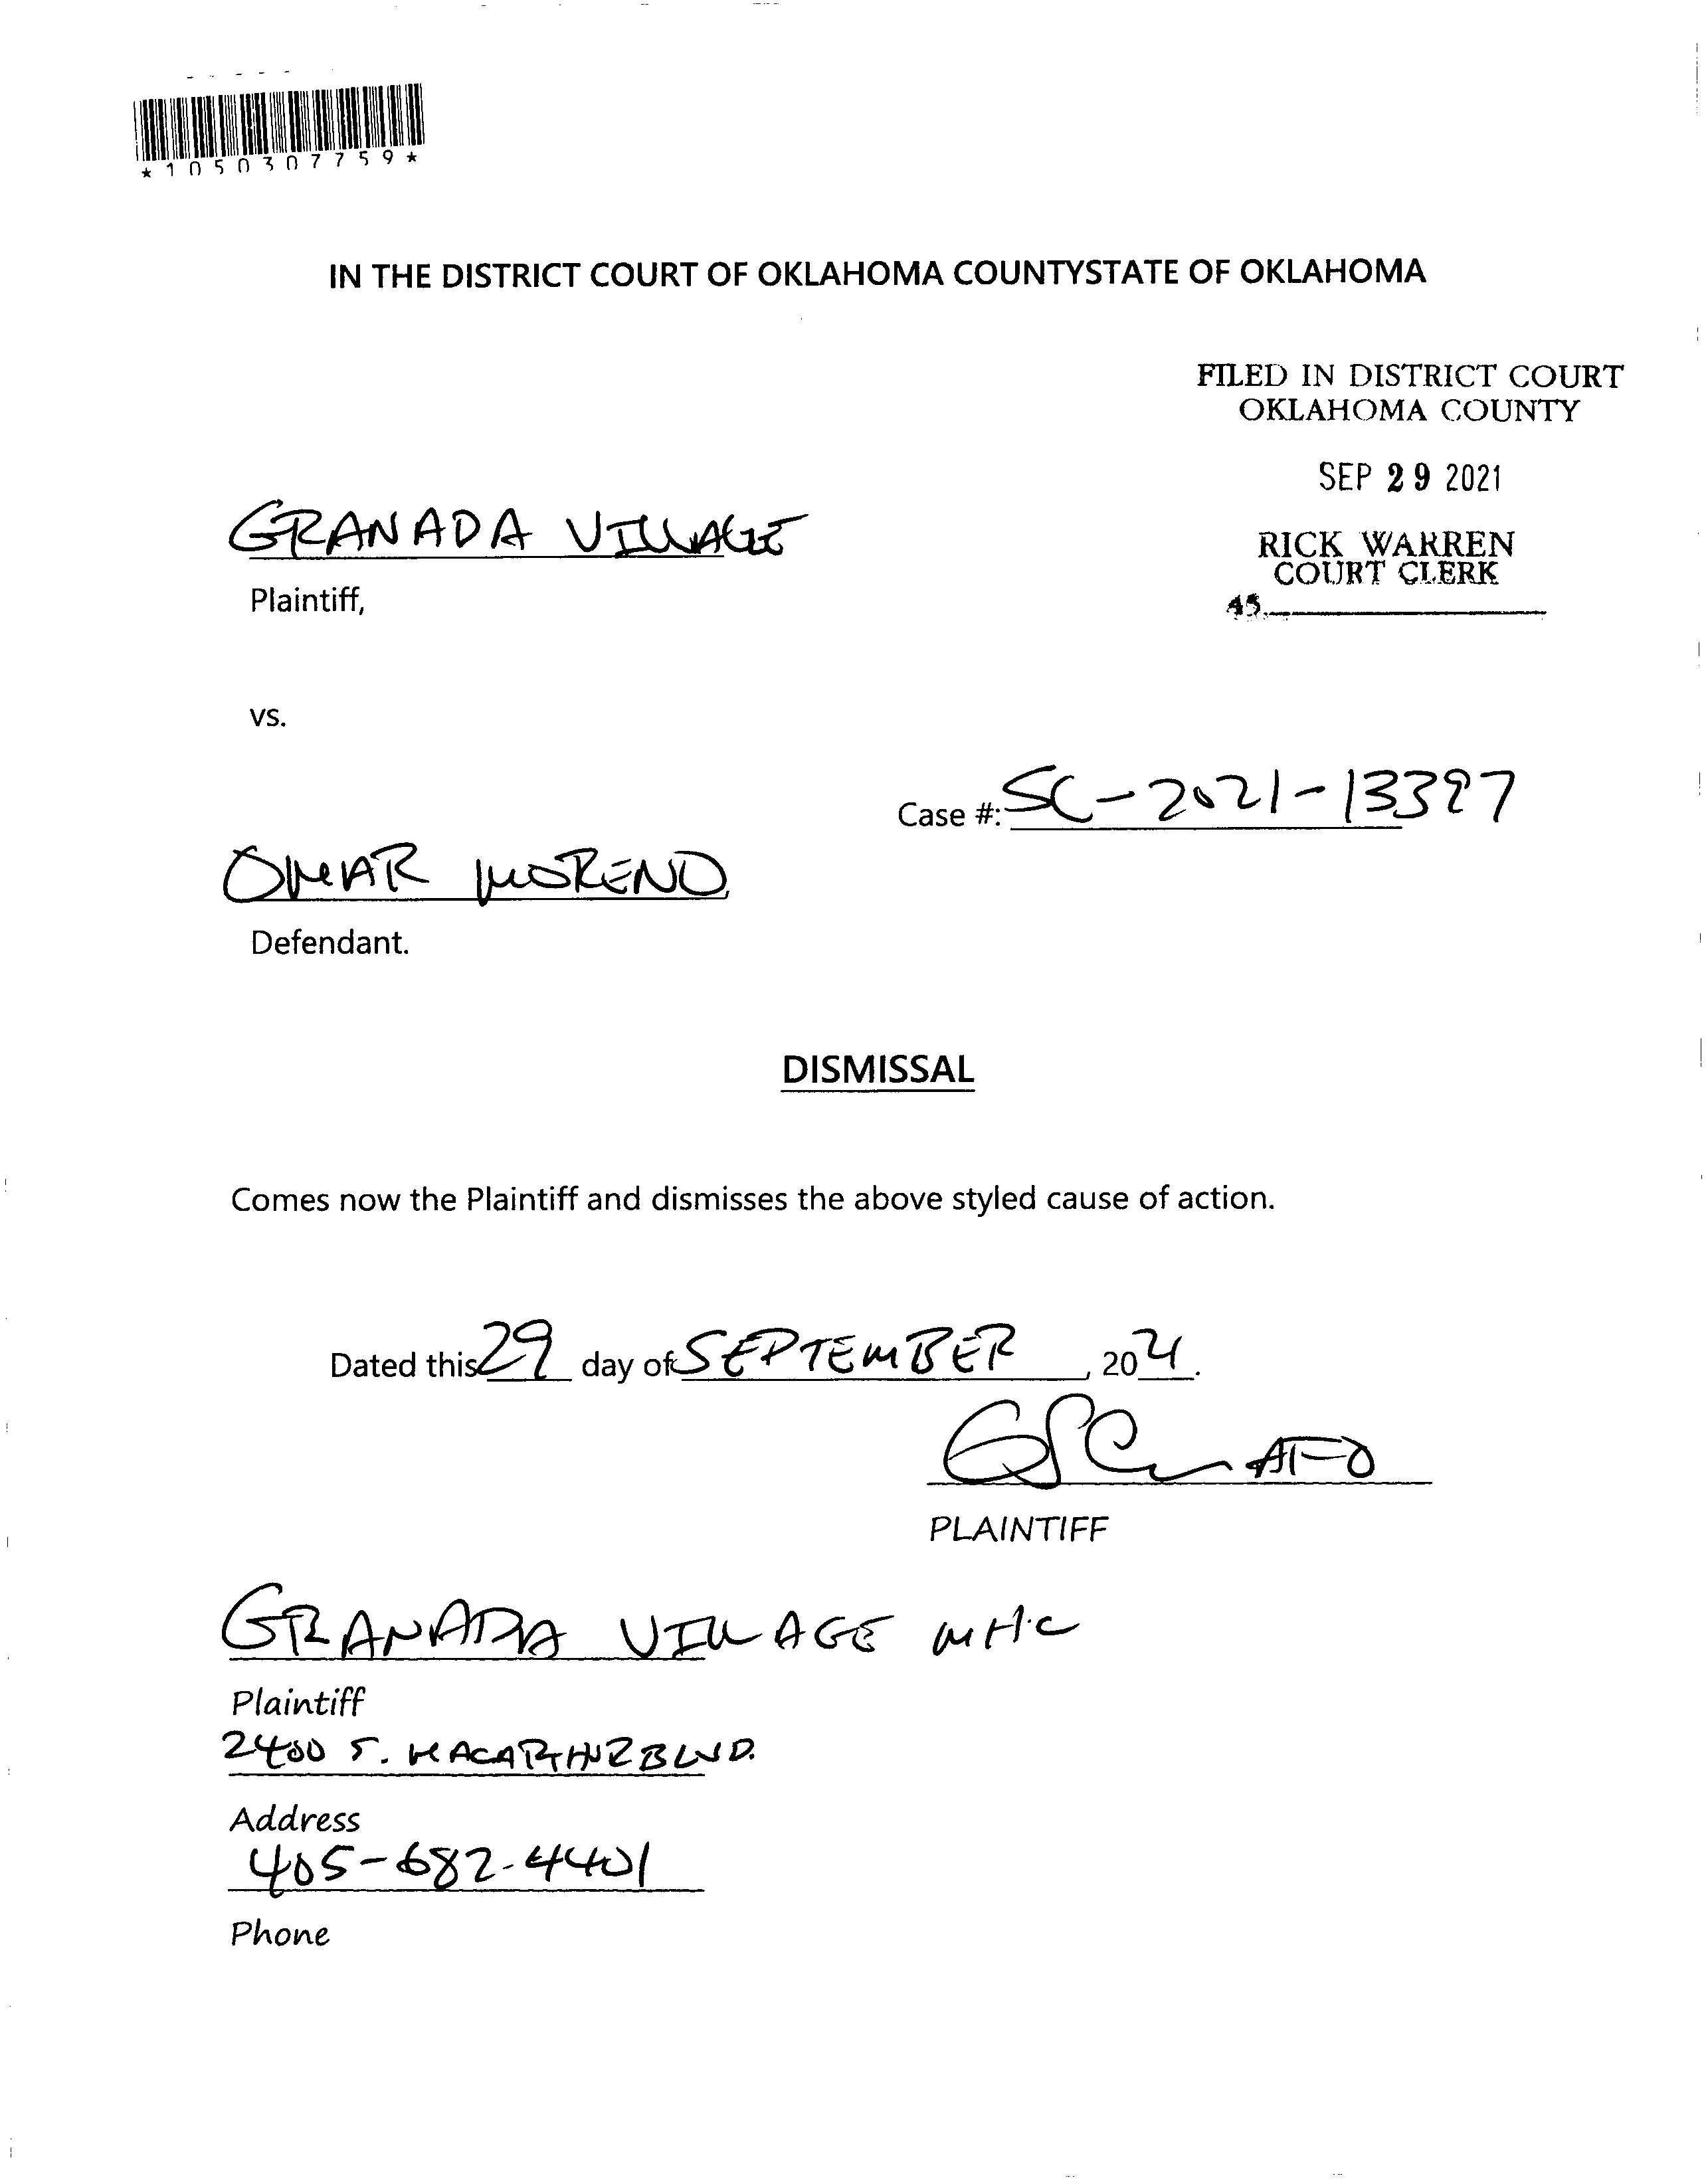 *1050307759*
IN THE DISTRICT COURT OF OKLAHOMA COUNTYSTATE OF OKLAHOMA
FILED IN DISTRICT COURT
OKLAHOMA COUNTY
SEP 29 2021
RICK WARREN
COURT CLERK
45
GRANADA VILLAGE
Plaintiff,
vs.
Case #: SC-2021-13397
OMAR MORENO,
Defendant.
DISMISSAL
Comes now the Plaintiff and dismisses the above styled cause of action.
Dated this 29 day of SEPTEMBER, 2021.
PLAINTIFF
GRANADA VILLAGE MHC
Plaintiff
2400 S. MACARTHUR BLVD.
Address
405-682-4401
Phone